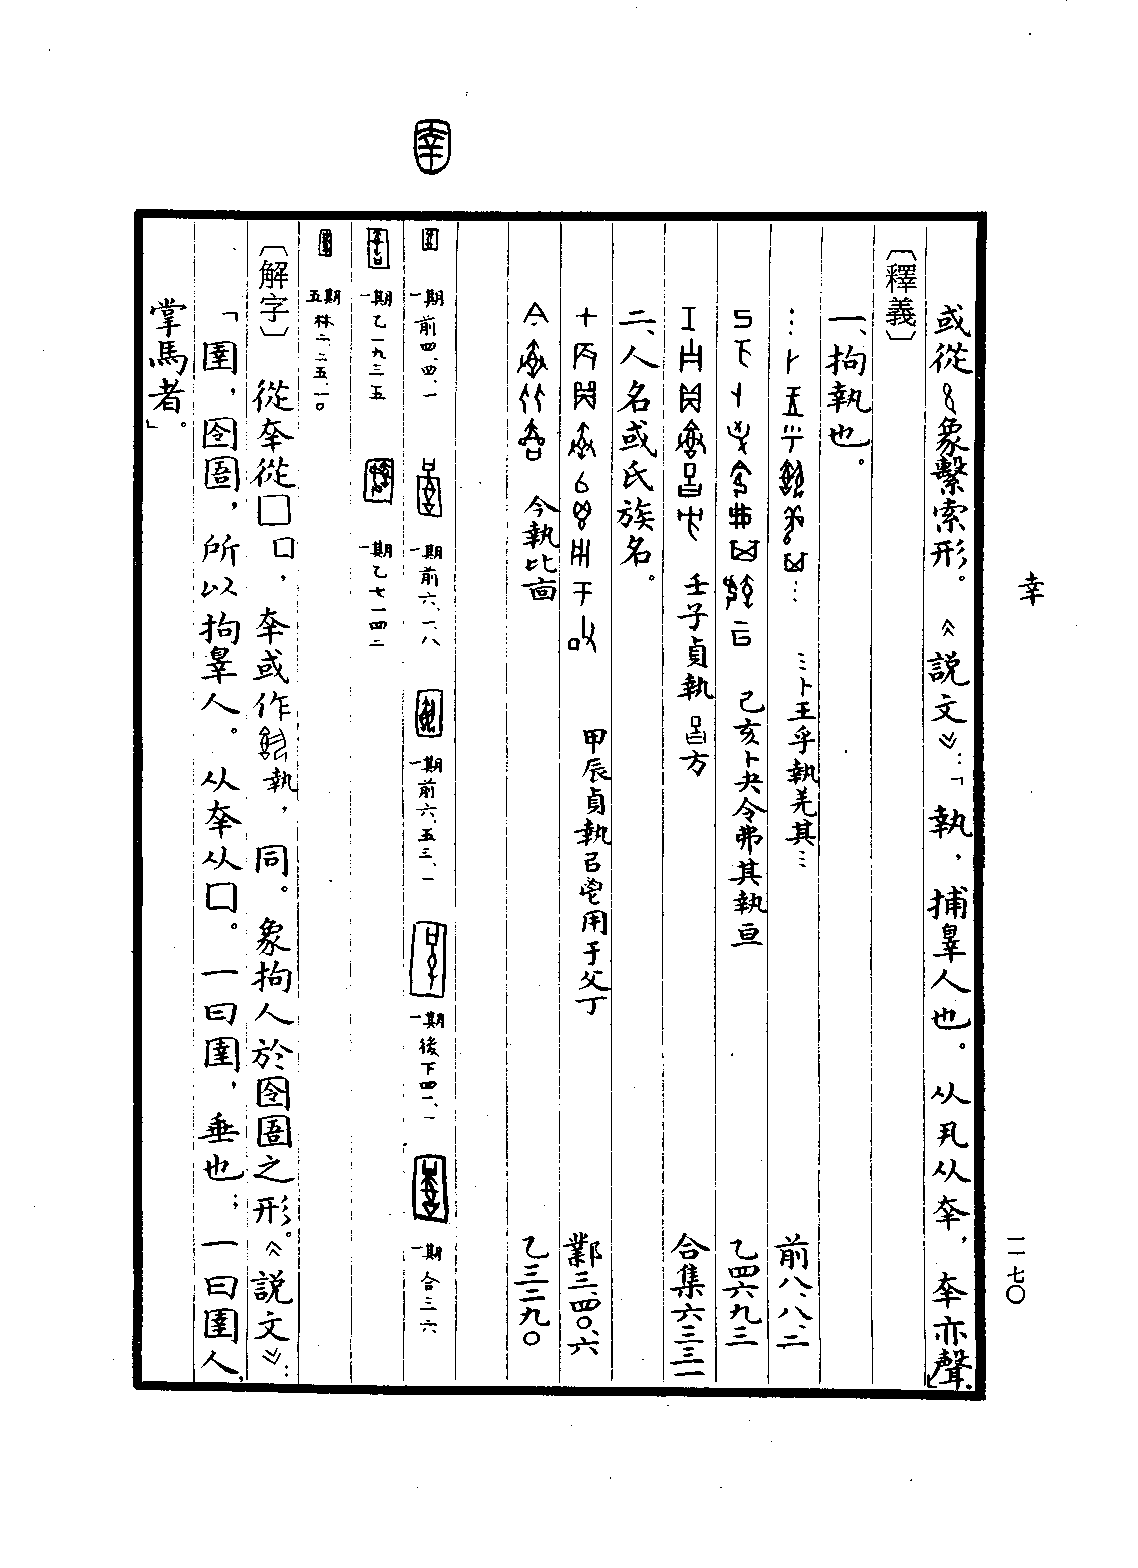 㚔
一一七〇
或從 象繫索形。《說文》：「執，捕辠人也。从丮从㚔，㚔亦聲。」
〔釋義〕
一、拘執也。
…卜王乎執羌其… 前八．八．二
己亥卜 令弗其執亘 乙四六九三
壬子貞執 方 合集六三三一
二、人名或氏族名。
甲辰貞執 用于父丁 鄴三．四〇．六
今執比 乙三二九〇
圉
一期 前四．四．一 一期 前六．一．八 一期 前六．五三．一 一期 後下四一．一 一期 合三六
一期 乙一九三五 一期 乙七一四二
五期 林二．二五．一〇
〔解字〕 從㚔從囗，㚔或作 執，同。象拘人於囹圄之形。《說文》：
「圉，囹圄，所以拘辠人。从㚔从囗。一曰圉，垂也；一曰圉人，
掌馬者。」